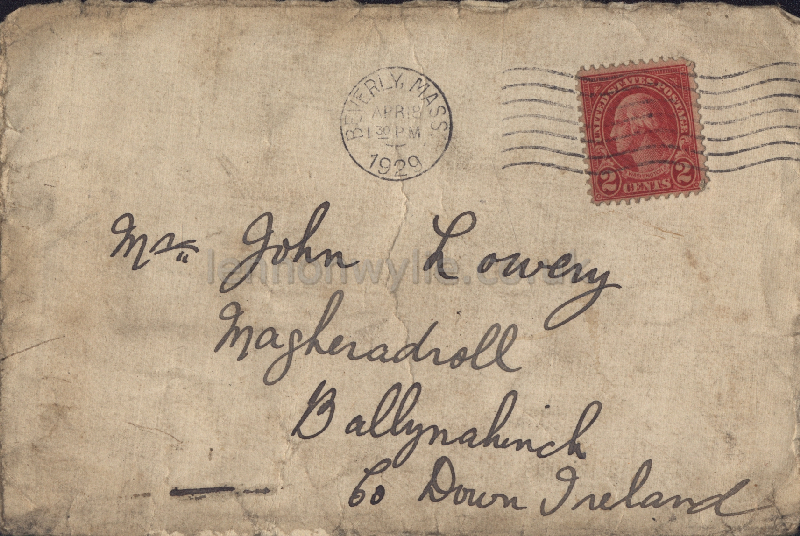 BEVERLY, MASS.
APR 18
1 30 PM
1929
UNITED STATES POSTAGE
2 CENTS 2
Mrs John Lowery
lennonwylie.co.uk
Magheradroll
Ballynahinch
Co Down Ireland